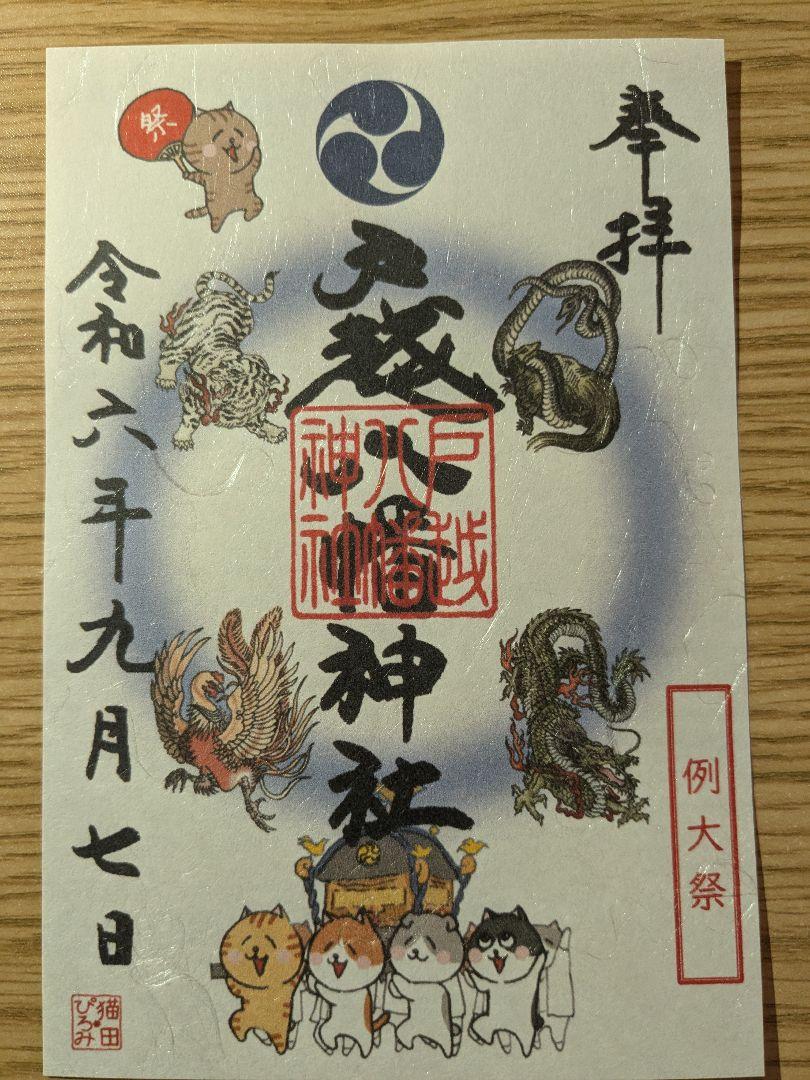 奉拝
例大祭
戸越八幡神社
戸越
八幡
神社
祭
令和六年九月七日
猫田
ぴろみ